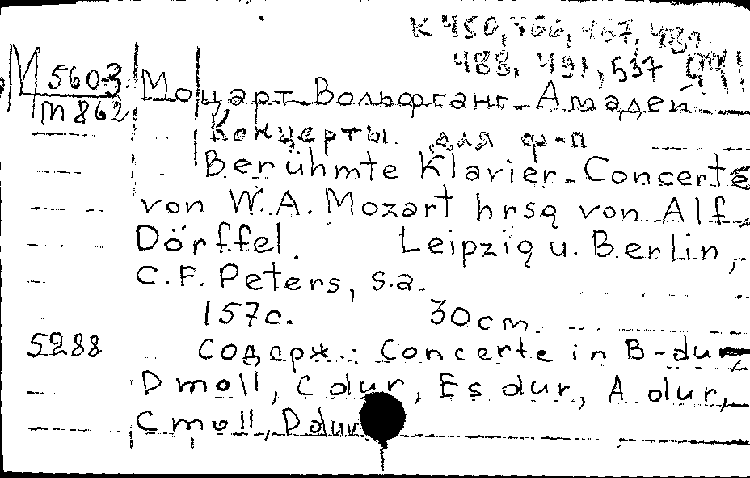 К 450, 466, 467, 482,
488, 491, 537
М 5603
m 862
Моцарт Вольфганг-Амадей
Концерты для ф-п
Berühmte Klavier-Concerte
von W.A. Mozart hrsg von Alf.
Dörffel. Leipzig u. Berlin,
C.F. Peters, s.a.
157с. 30cm.
5288
Содерж.: Concerte in B-dur
D moll, C dur, Es dur, A dur,
C moll, D dur